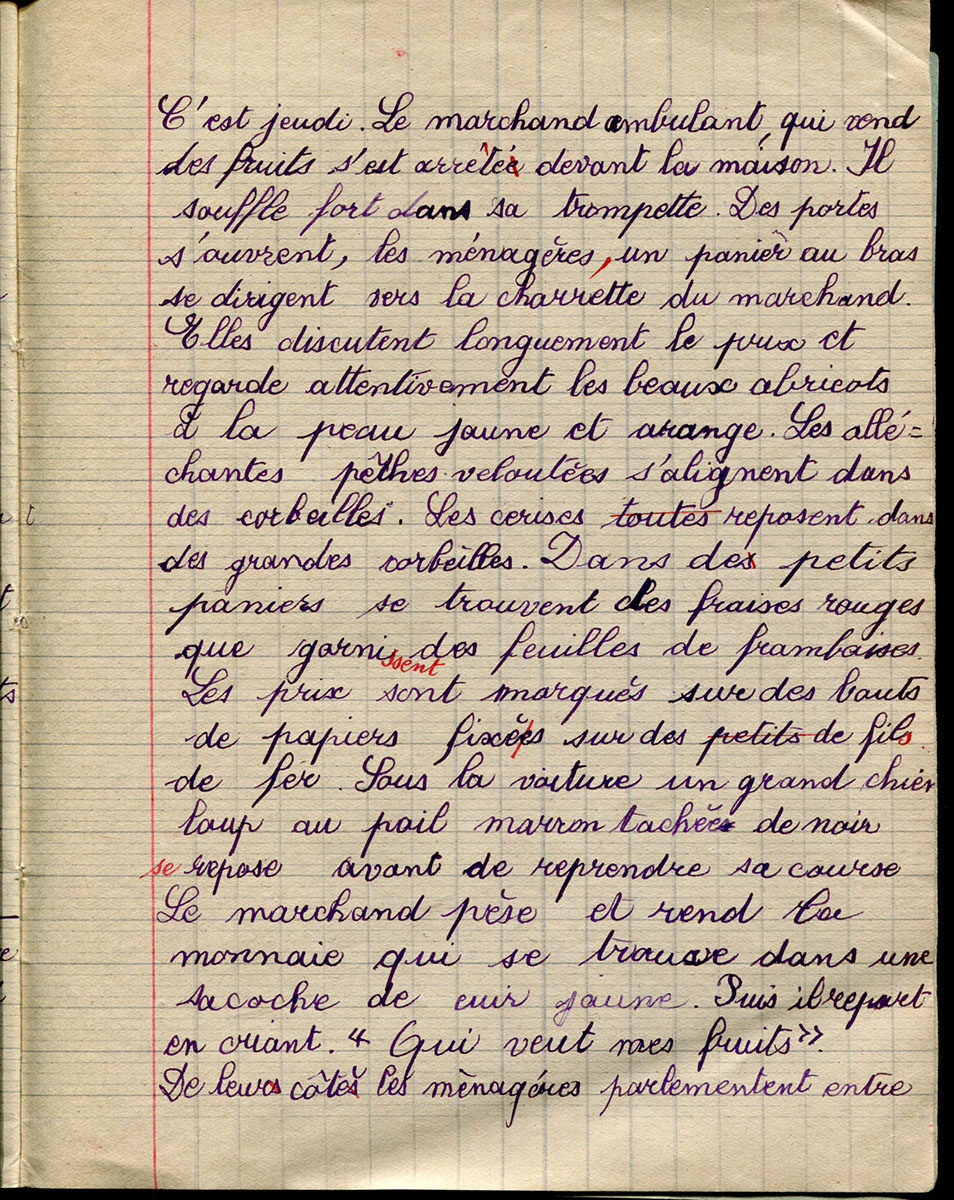 C'est jeudi. Le marchand ambulant, qui vend
des fruits s'est arrêtée devant la maison. Il
souffle fort dans sa trompette. Des portes
s'ouvrent, les ménagères, un panier au bras
se dirigent vers la charrette du marchand.
Elles discutent longuement le prix et
regarde attentivement les beaux abricots
à la peau jaune et orange. Les allé=
chantes pêches veloutées s'alignent dans
des corbeilles. Les cerises toutes reposent dans
des grandes corbeilles. Dans des petits
paniers se trouvent des fraises rouges
que garnissent des feuilles de framboises.
Les prix sont marqués sur des bouts
de papiers fixées sur des petits de fils
de fer. Sous la voiture un grand chien
loup au poil marron tachée de noir
se repose avant de reprendre sa course
Le marchand pèse et rend la
monnaie qui se trouve dans une
sacoche de cuir jaune. Puis il repart
en criant. « Qui veut mes fruits ».
De leurs côtés les ménagères parlementent entre